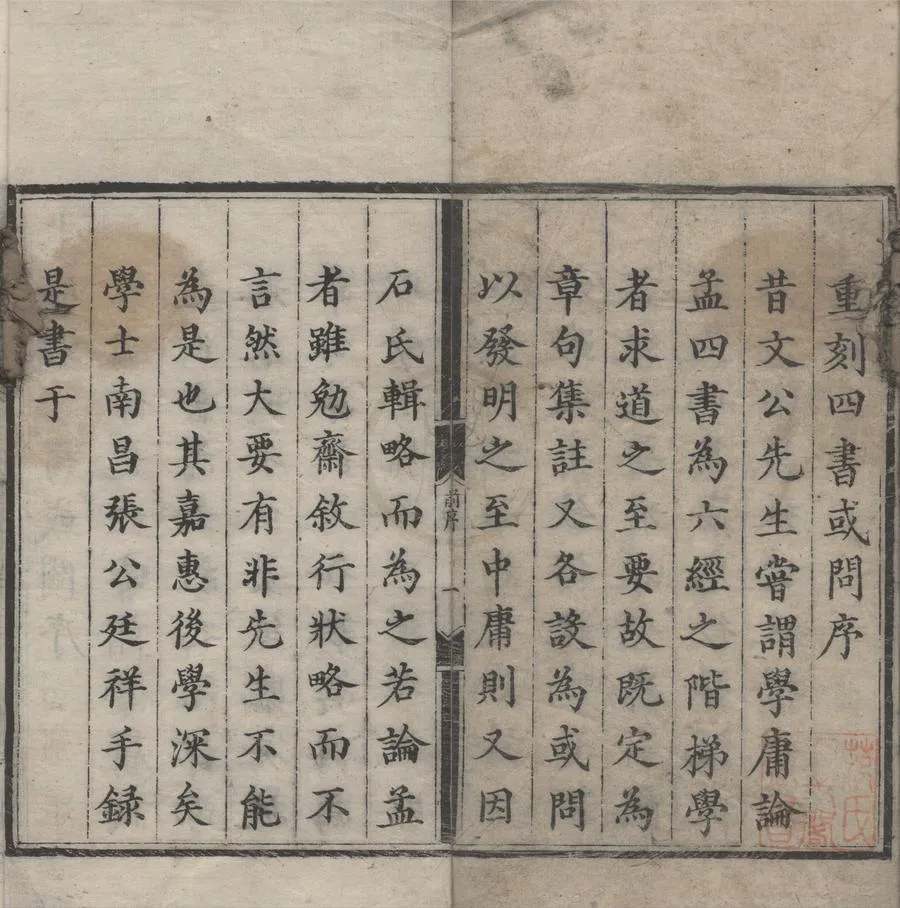 重刻四書或問序
昔文公先生嘗謂學庸論
孟四書為六經之階梯學
者求道之至要故既定為
章句集註又各設為或問
以發明之至中庸則又因
前序 一
石氏輯略而為之若論孟
者雖勉齋敘行狀略而不
言然大要有非先生不能
為是也其嘉惠後學深矣
學士南昌張公廷祥手録
是書于